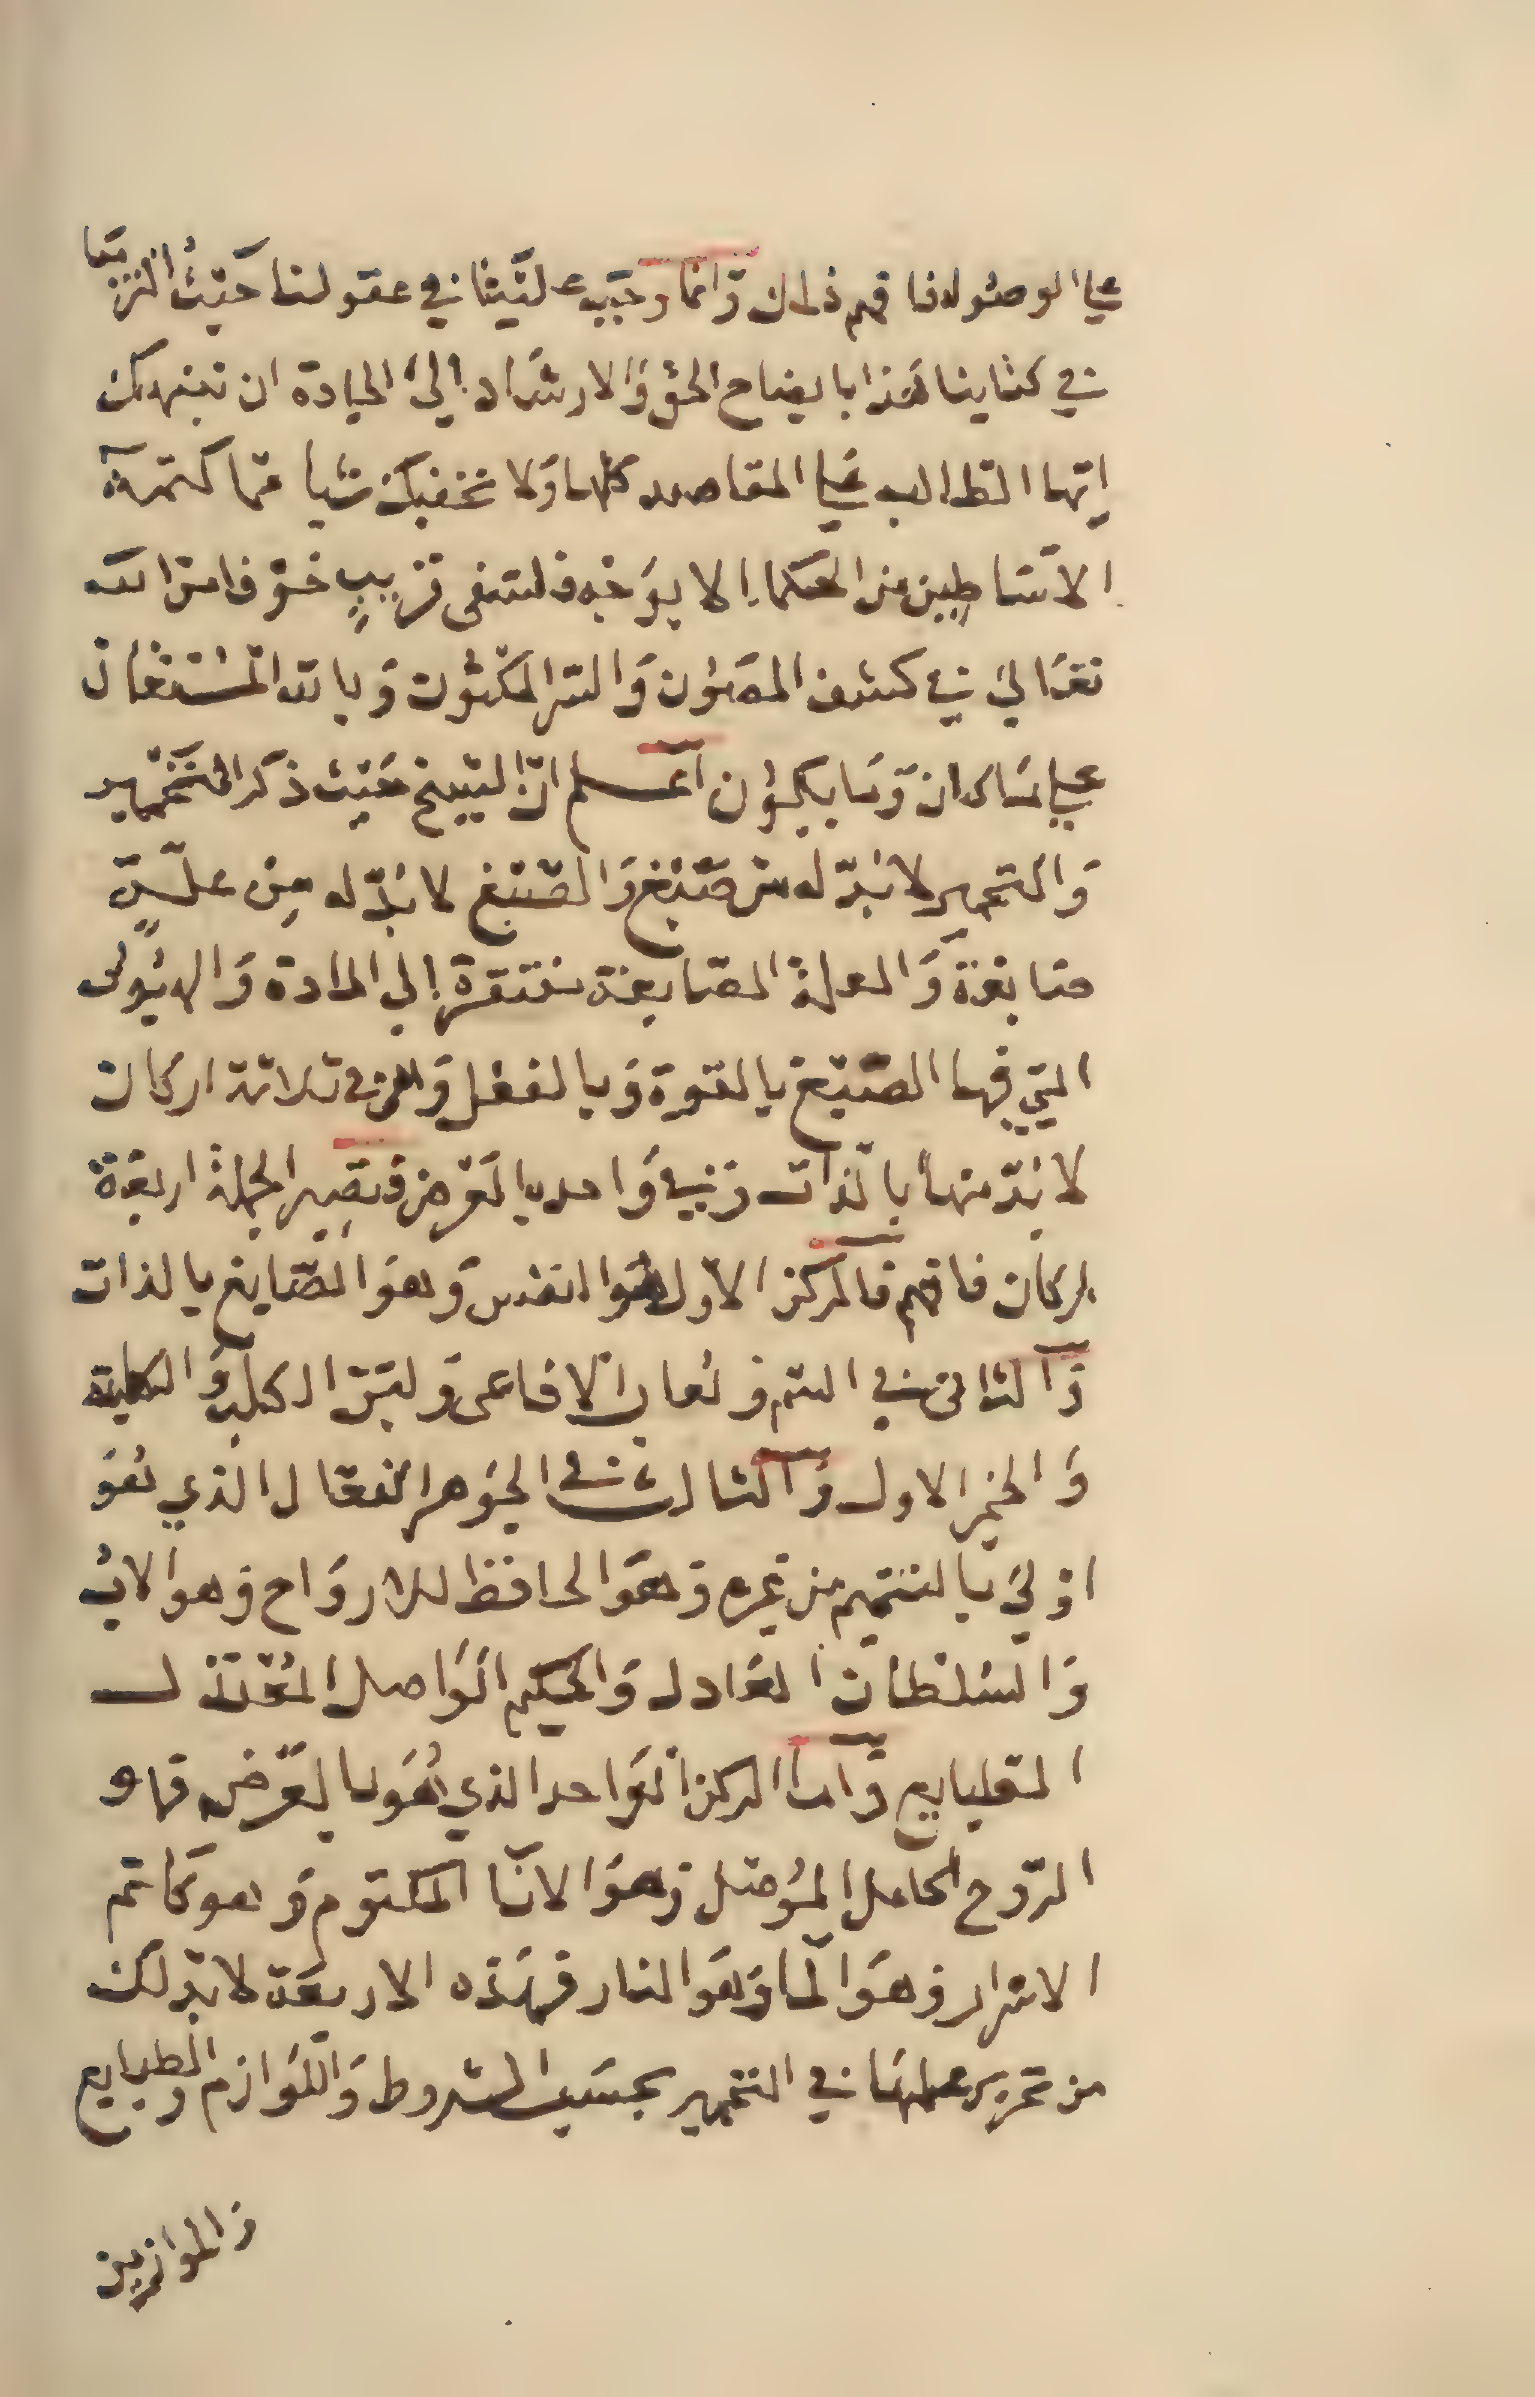 على الوصول فافهم ذلك وانما وجب علينا في عقولنا حيث التزمنا
في كتابنا هذا بايضاح الحق والارشاد إلى الجادة ان ننبهك
ايها الطالب على المقاصد كلها ولا نخفيك شيا مما كتمه
الاساطين من الحكما إلا بوجه فلسفي قريب خوفا من الله
تعالى في كشف المصون والسر المكنون وبالله المستعان
على ما كان وما يكون اعلم ان الشيخ حيث ذكر التخمير
والتخمير لا بد له من صبغ والصبغ لا بد له من علة
صابغة والعلة الصابغة مفتقرة إلى المادة والهيولى
التي فيها الصبغ بالقوة وبالفعل وهي في ثلاثة اركان
لا بد منها بالذات وفي واحد بالعرض فتصير الجملة اربعة
اركان فافهم فالمركز الاول هو النفس وهو الصابغ بالذات
والثاني في السم ولعاب الافاعي ولبن الكلب والكلبة
والخمير الاول والثالث في الجوهر الفعال الذي هو
اولى بالتتميم من غيره وهو الحافظ للارواح وهو الاب
والسلطان العادل والحكيم الواصل المعتدل
القلبايع واما الركن الواحد الذي هو بالعرض فهو
الروح الحامل الموصل وهو الانا المكتوم وهو كاتم
الاسرار وهو الما وهو النار فهذه الاربعة لا بد لك
من تحرير عملها في التخمير بحسب الشروط واللوازم والطبايع
والموازين